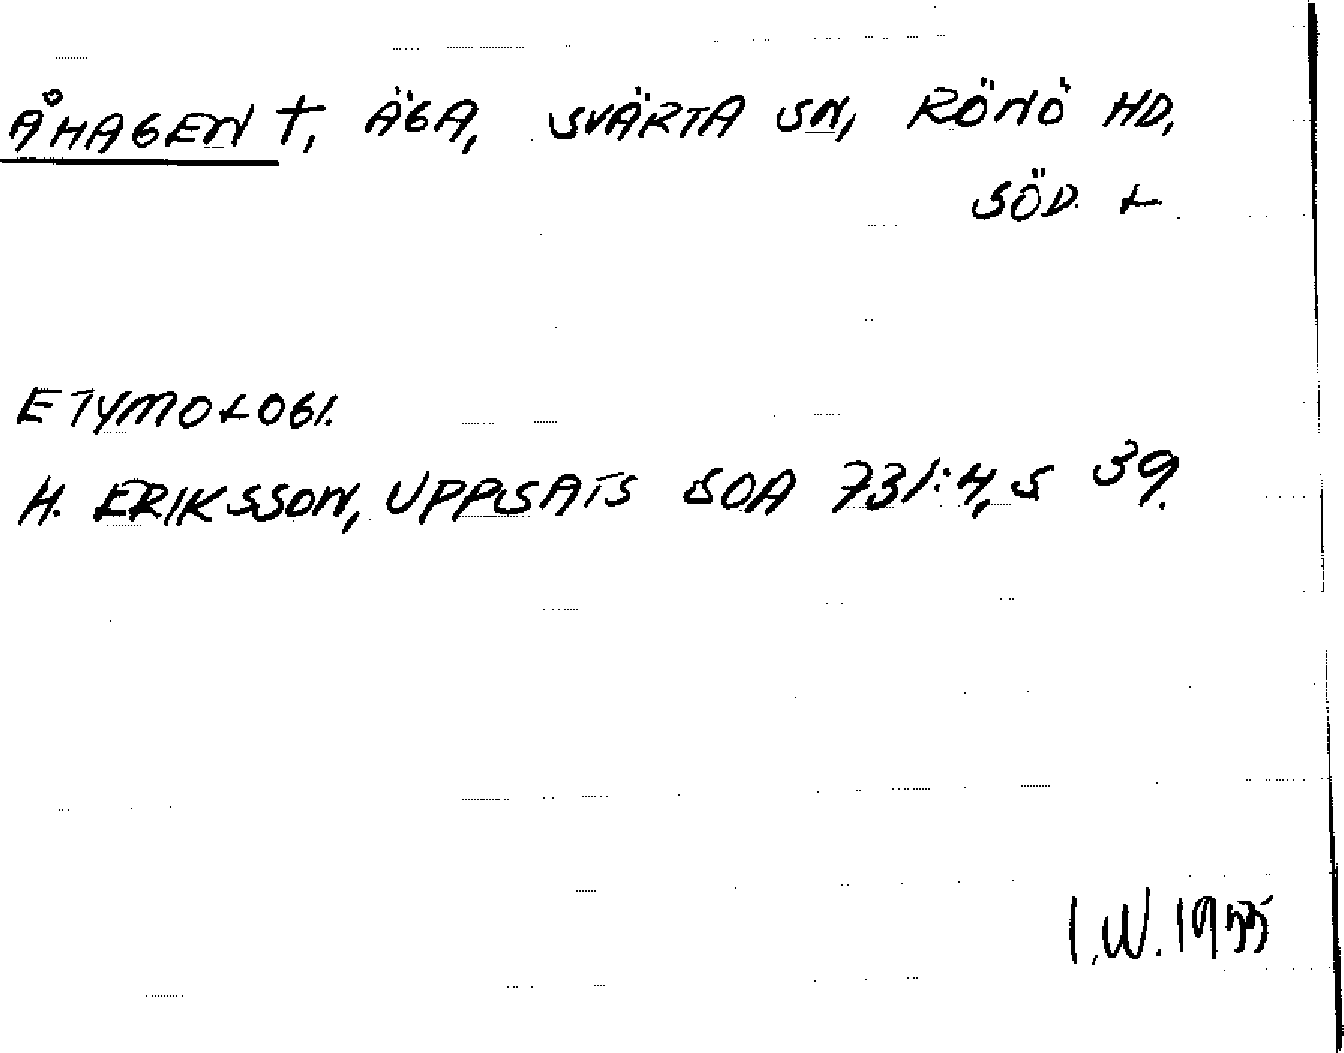 ÅHAGEN †, ÄGA, SVÄRTA SN, RÖNÖ HD,
SÖD. L
ETYMOLOGI.
H. ERIKSSON, UPPSATS SOA 731:4, S 39.
I.W. 1955